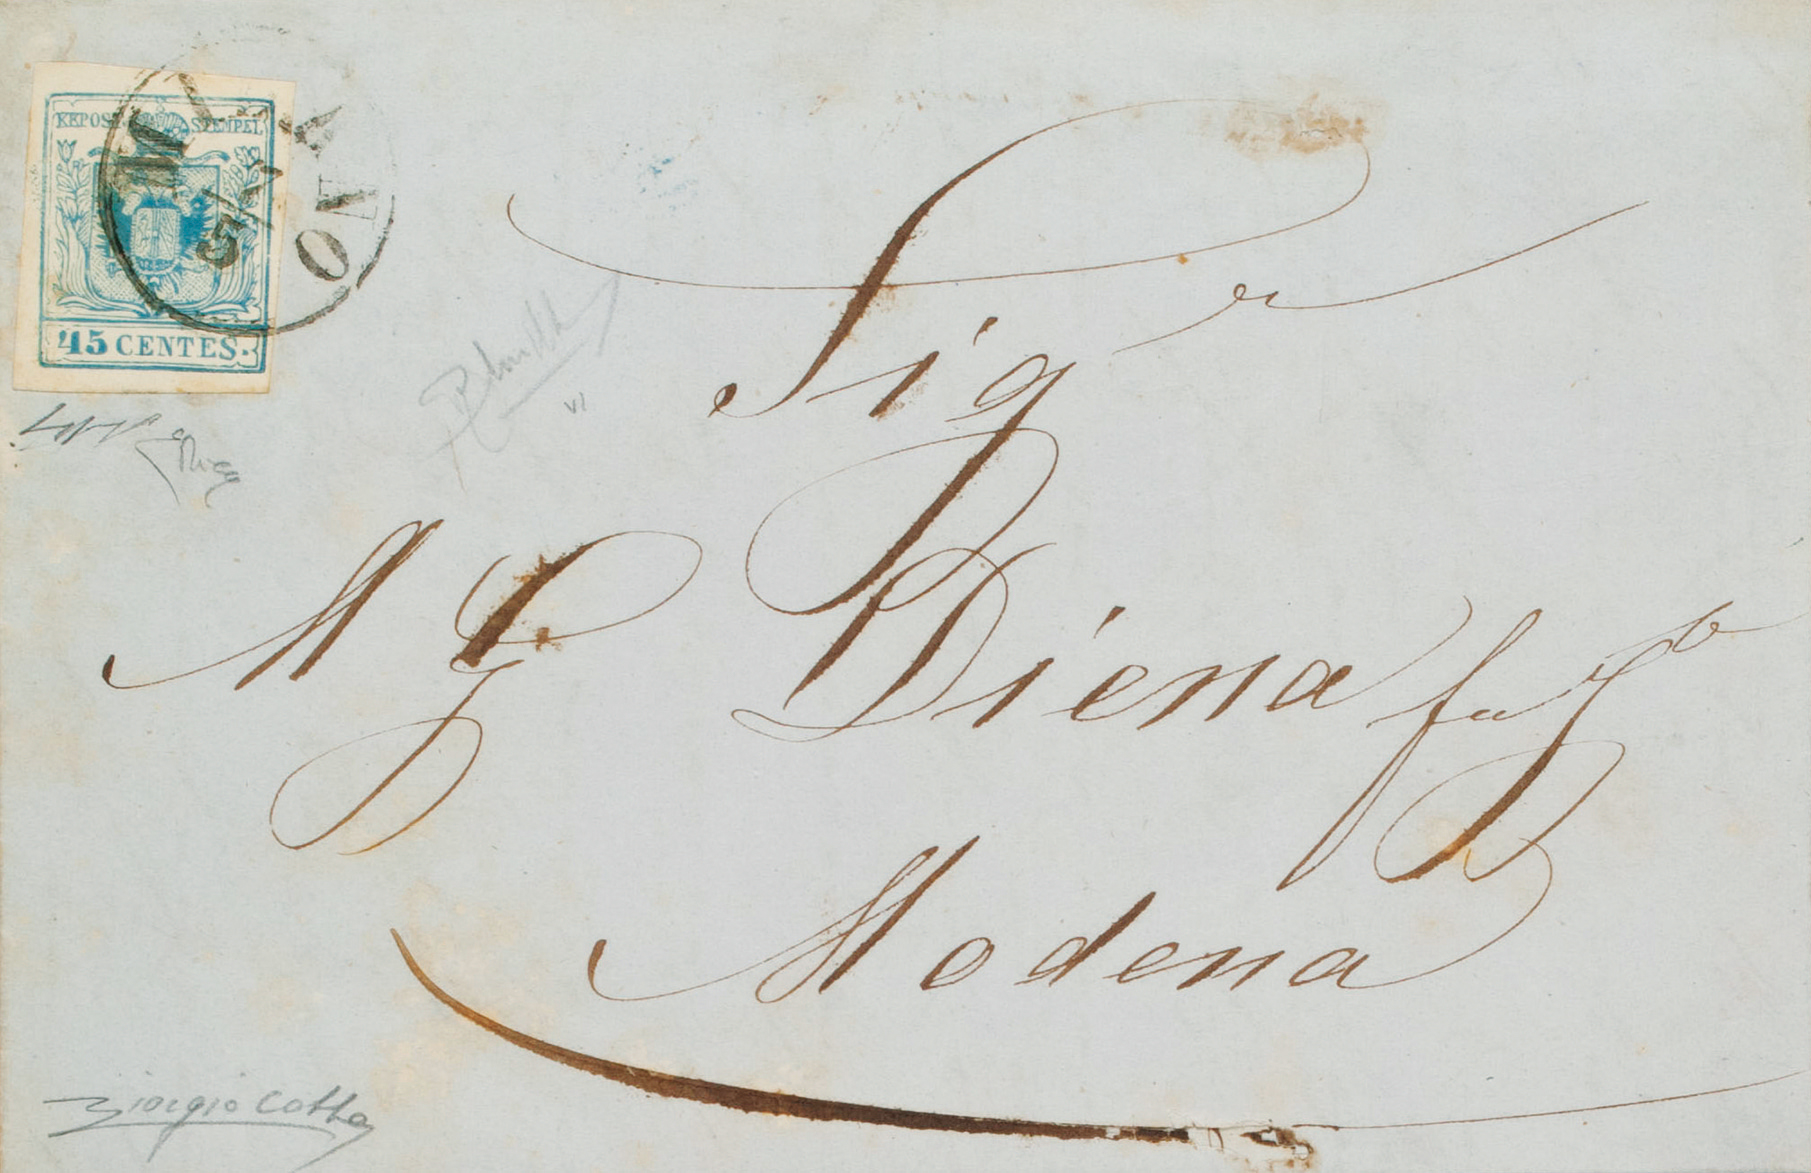 KKPOST STEMPEL
45 CENTES.
MILANO
5/7
Sig.r
M G Diena fu J.b
Modena
giorgio colla